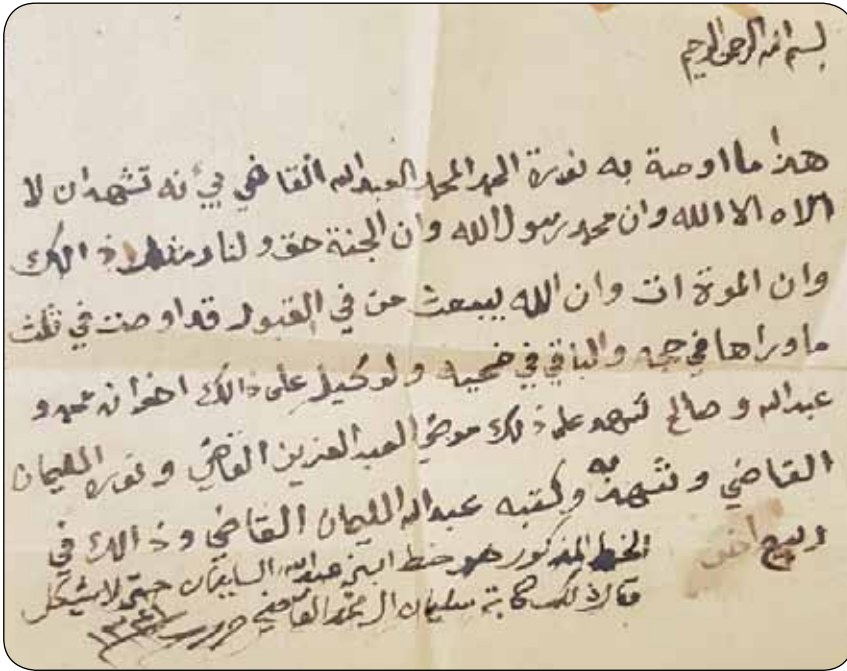 بسم الله الرحمن الرحيم
هذا ما اوصة به نورة الحمد المحمد العبدالله القاضي بأنه تشهد ان لا
الاه الا الله وان محمد رسول الله وان الجنة حق ولنار مثل ذالك
وان الموة ات وان الله يبعث من في القبور قد اوصت في ثلث
ما وراها في حجه والباقي في ضحيه ولوكيل على ذالك اخوانه محمد و
عبدالله و صالح شهد على ذلك موضي العبدالعزيز القاضي و نوره السليمان
القاضي و شهد به وكتبه عبدالله السليمان القاضي وذالك في
ربيع اخر الخط المذكور هو خط ابني عبدالله السليمان حتى لا يشكل
قال ذلك كاتبه سليمان المحمد القاضي حرر